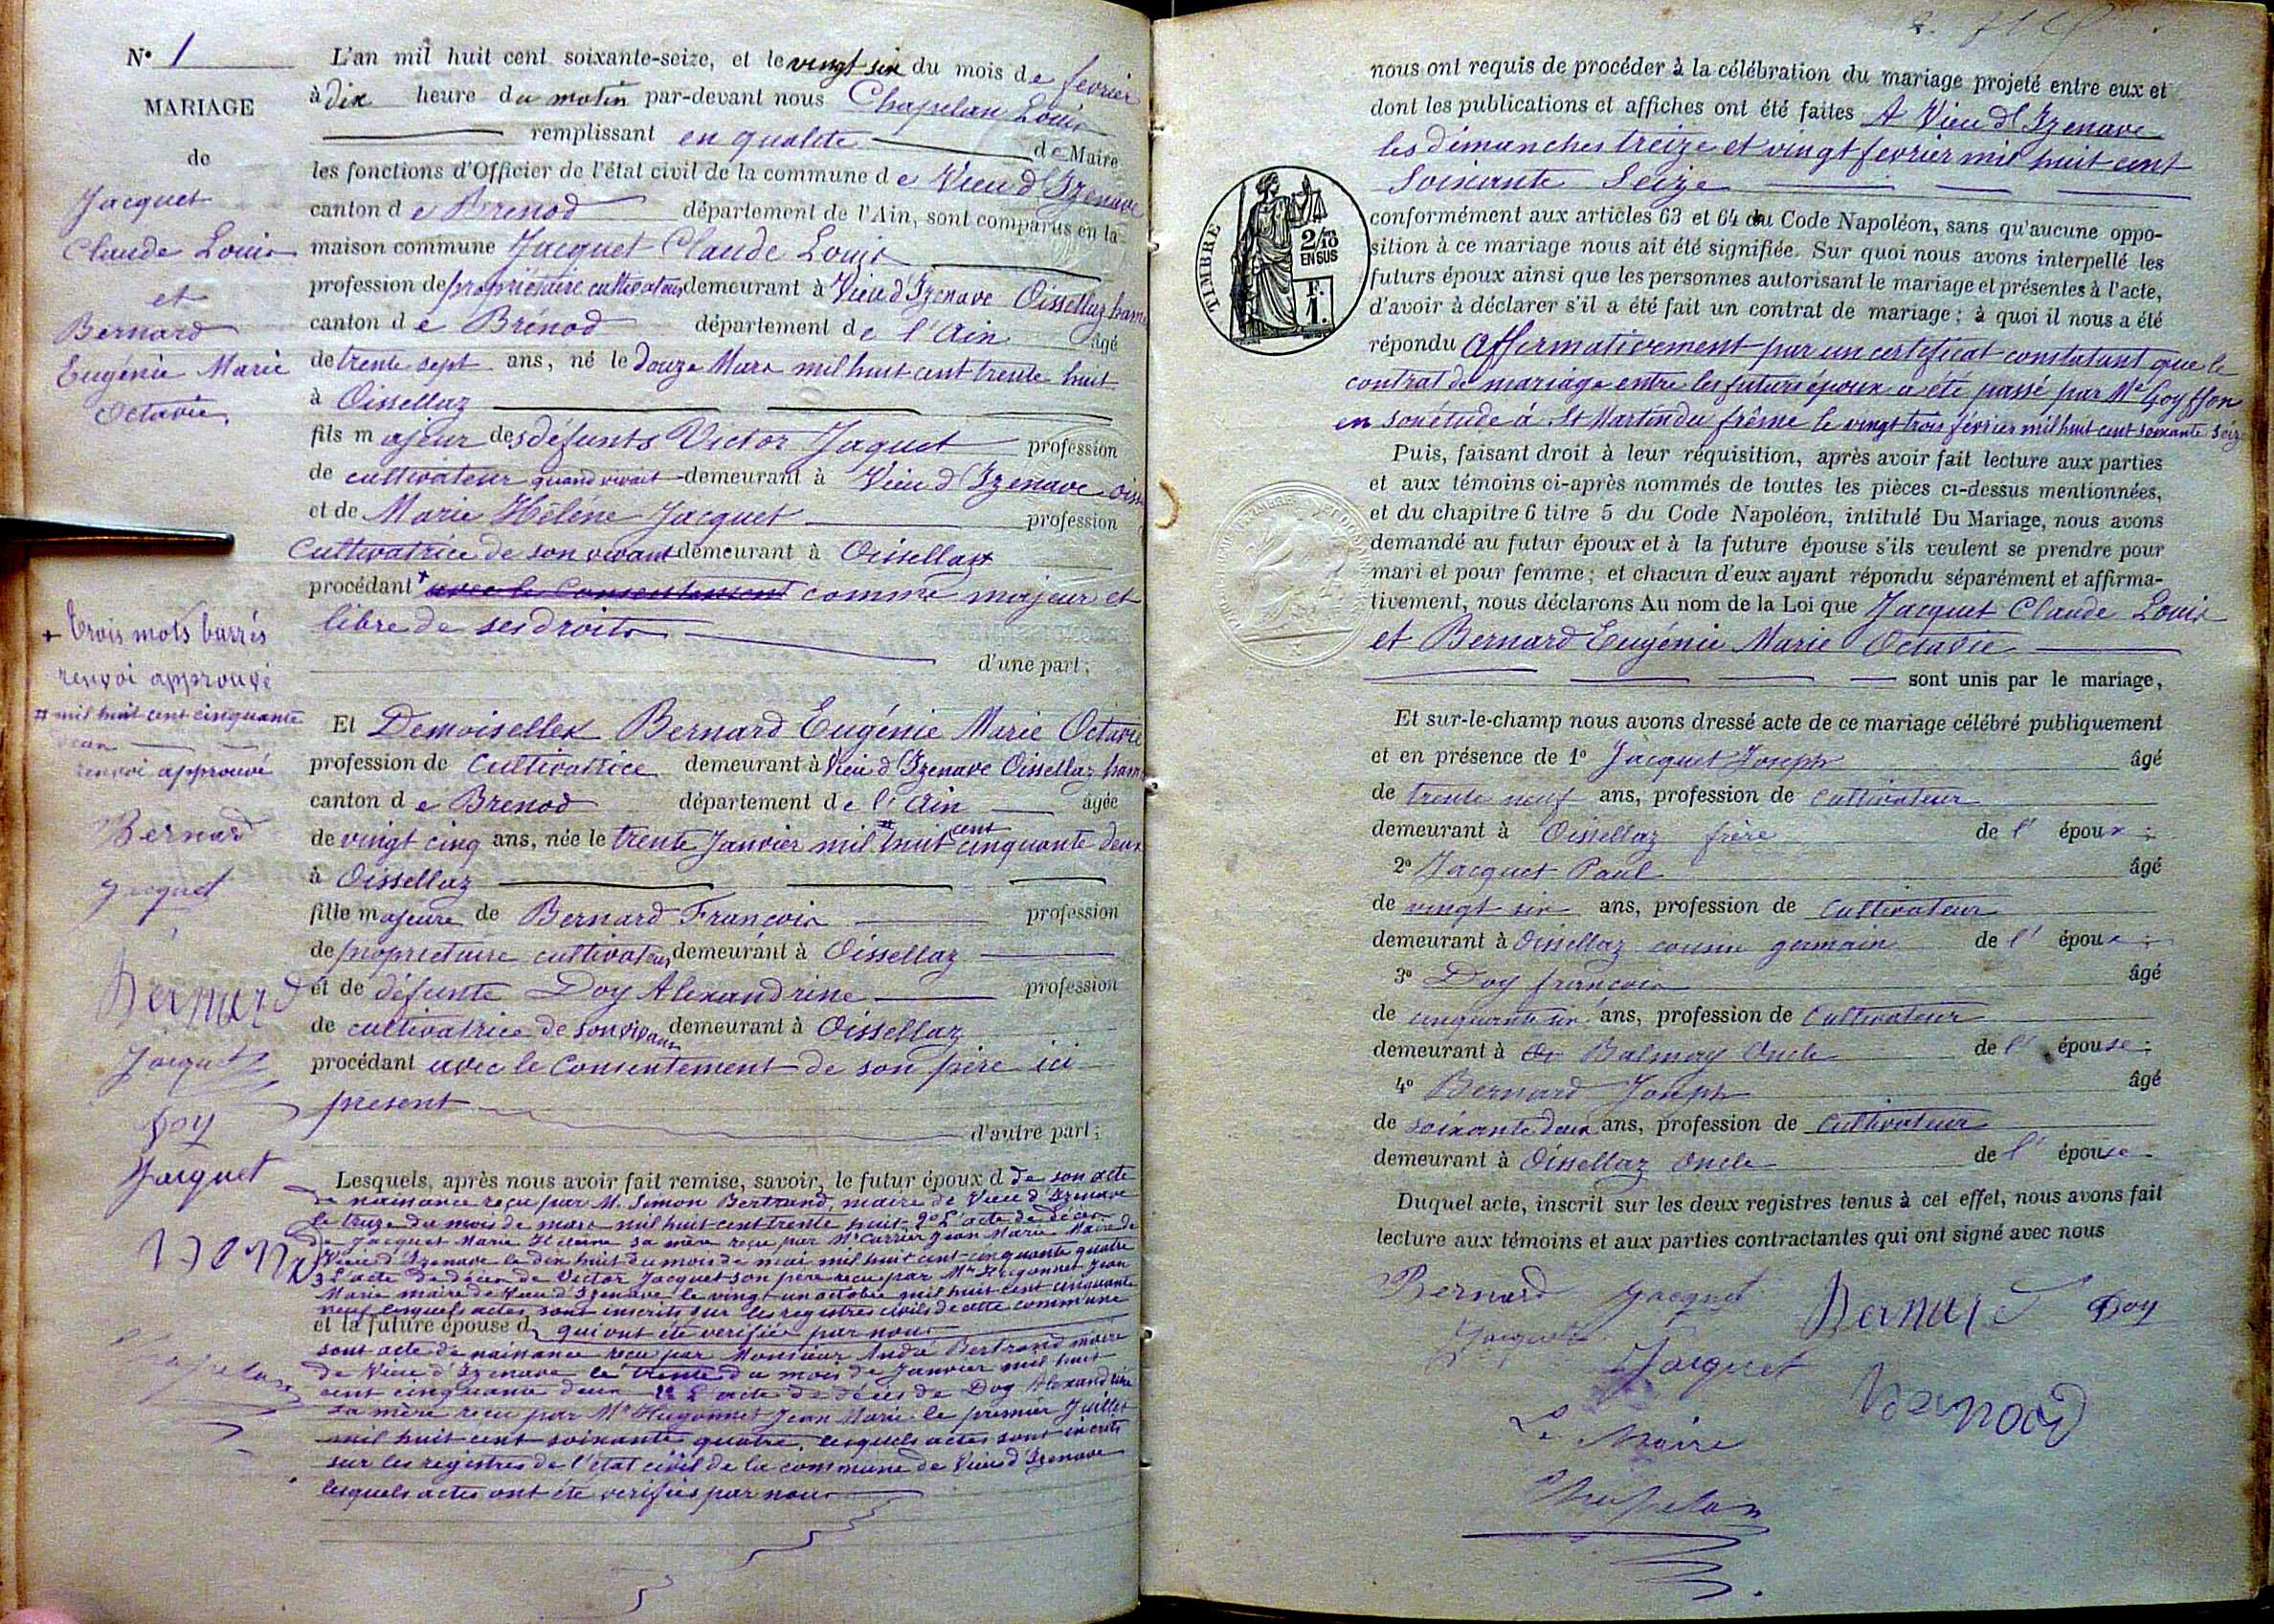 N° 1
MARIAGE
de
Jacquet
Claude Louis
et
Bernard
Eugénie Marie
Octavie,
+ trois mots barrés
renvoi approuvé
# mil huit cent cinquante
deux
renvoi approuvé
Bernard
Jacquet
Bernard
Jacquet
Doy
Jacquet
Bernard
Chapelan
L'an mil huit cent soixante-seize, et le vingt six du mois de fevrier
à dix heure du matin par-devant nous Chapelan Louis
remplissant en qualité de Maire
les fonctions d'Officier de l'état civil de la commune de Vieu d'Izenave
canton de Brenod département de l'Ain, sont comparus en la
maison commune Jacquet Claude Louis
profession de propriétaire cultivateur demeurant à Vieu d'Izenave Oissellaz ham
canton de Brénod département de l'Ain âgé
de trente sept ans, né le douze Mars mil huit cent trente huit
à Oissellaz
fils majeur des défunts Victor Jaquet profession
de cultivateur quand vivait demeurant à Vieu d'Izenave oiss
et de Marie Hélène Jacquet profession
Cultivatrice de son vivant demeurant à Oissellaz
procédant + avec le Consentement comme majeur et
libre de ses droits
d'une part;
Et Demoiselle Bernard Eugénie Marie Octavie
profession de Cultivatrice demeurant à Vieu d'Izenave Oissellaz ham
canton de Brenod département de l'Ain âgée
de vingt cinq ans, née le trente Janvier mil # huit cent cinquante deux
à Oissellaz
fille majeure de Bernard Francois profession
de propriétaire cultivateur demeurant à Oissellaz
et de défunte Doy Alexandrine profession
de cultivatrice de son vivant demeurant à Oissellaz
procédant avec le Consentement de son père ici
present
d'autre part;
Lesquels, après nous avoir fait remise, savoir, le futur époux d de son acte
de naissance reçu par M. Simon Bertrand, maire de Vieu d'Izenave
le treize du mois de mars mil huit cent trente huit 2° L'acte de décès
de Jacquet Marie Héleine sa mère reçu par Mr Carrier Jean Marie Maire de
Vieu d'Izenave le dix huit du mois de mai mil huit cent cinquante quatre
3 L'acte de décès de Victor Jacquet son père reçu par Mr Hugonnet Jean
Marie maire de Vieu d'Izenave le vingt un octobre mil huit cent cinquante
neuf lesquels actes sont inscrits sur les registres civils de cette commune
et la future épouse d qui ont été verifiés par nous
sont acte de naissance reçu par Monsieur André Bertrand maire
de Vieu d'Izenave le trente du mois de Janvier mil huit
cent cinquante deux 2° L'acte de décès de Doy Alexandrine
sa mère reçu par Mr Hugonnet Jean Marie le premier Juillet
mil huit cent soixante quatre, lesquels actes sont inscrits
sur les registres de l'état civil de la commune de Vieu d'Izenave
lesquels actes ont été verifiés par nous
nous ont requis de procéder à la célébration du mariage projeté entre eux et
dont les publications et affiches ont été faites A Vieu d'Izenave
les dimanches treize et vingt fevrier mil huit cent
Soixante Seize
TIMBRE
2/10 EN SUS
F. 1.
conformément aux articles 63 et 64 du Code Napoléon, sans qu'aucune oppo-
sition à ce mariage nous ait été signifiée. Sur quoi nous avons interpellé les
futurs époux ainsi que les personnes autorisant le mariage et présentes à l'acte,
d'avoir à déclarer s'il a été fait un contrat de mariage; à quoi il nous a été
répondu Affirmativement par un certificat constatant que le
contrat de mariage entre les futurs époux a été passé par Me Goyffon
en son étude à St Martin du frêne le vingt trois février mil huit cent soixante seize
Puis, faisant droit à leur réquisition, après avoir fait lecture aux parties
et aux témoins ci-après nommés de toutes les pièces ci-dessus mentionnées,
et du chapitre 6 titre 5 du Code Napoléon, intitulé Du Mariage, nous avons
demandé au futur époux et à la future épouse s'ils veulent se prendre pour
mari et pour femme; et chacun d'eux ayant répondu séparément et affirma-
tivement, nous déclarons Au nom de la Loi que Jacquet Claude Louis
et Bernard Eugénie Marie Octavie
sont unis par le mariage,
Et sur-le-champ nous avons dressé acte de ce mariage célébré publiquement
et en présence de 1° Jacquet Joseph âgé
de trente neuf ans, profession de Cultivateur
demeurant à Oissellaz frère de l'époux;
2° Jacquet Paul âgé
de vingt six ans, profession de Cultivateur
demeurant à Oissellaz cousin germain de l'époux;
3° Doy francois âgé
de cinquante six ans, profession de Cultivateur
demeurant à Balmay Oncle de l'épouse;
4° Bernard Joseph âgé
de soixante deux ans, profession de Cultivateur
demeurant à Oissellaz Oncle de l'épouse
Duquel acte, inscrit sur les deux registres tenus à cet effet, nous avons fait
lecture aux témoins et aux parties contractantes qui ont signé avec nous
Bernard Jacquet Bernard Doy
Jacquet Jacquet Bernard
Le Maire
Chapelan